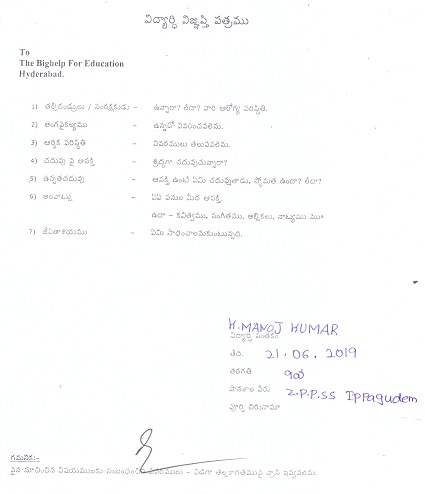 విద్యార్ధి విజ్ఞప్తి పత్రము
To
The Bighelp For Education
Hyderabad.
1) తల్లిదండ్రులు / సంరక్షకుడు – ఉన్నారా? లేదా? వారి ఆరోగ్య పరిస్థితి.
2) అంగవైకల్యము – ఉన్నచో వివరించవలెను.
3) ఆర్ధిక పరిస్థితి – వివరములు తెలుపవలెను.
4) చదువు పై ఆసక్తి – శ్రద్ధగా చదువుచున్నారా?
5) ఉన్నతచదువు – ఆసక్తి ఉంటే ఏమి చదువుతాడు, స్తోమత ఉందా? లేదా?
6) అలవాట్లు – ఏఏ పనుల మీద ఆసక్తి.
ఉదా – కవిత్వము, సంగీతము, అల్లికలు, నాట్యము
7) జీవితాశయము – ఏమి సాధించాలనుకుంటున్నది.
H. MANOJ KUMAR
విద్యార్ధి సంతకం
తేది. 21.06.2019
తరగతి
పాఠశాల పేరు Z.P.P.SS Ippagudem
పూర్తి చిరునామా
గమనిక:-
పైన సూచించిన విషయములకు సంబంధించిన వివరములు – విడిగా తెల్లకాగితముపై వ్రాసి ఇవ్వవలెను.